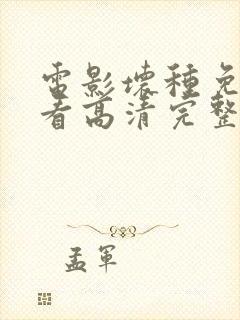 電影壞種免
看高清完整
孟軍